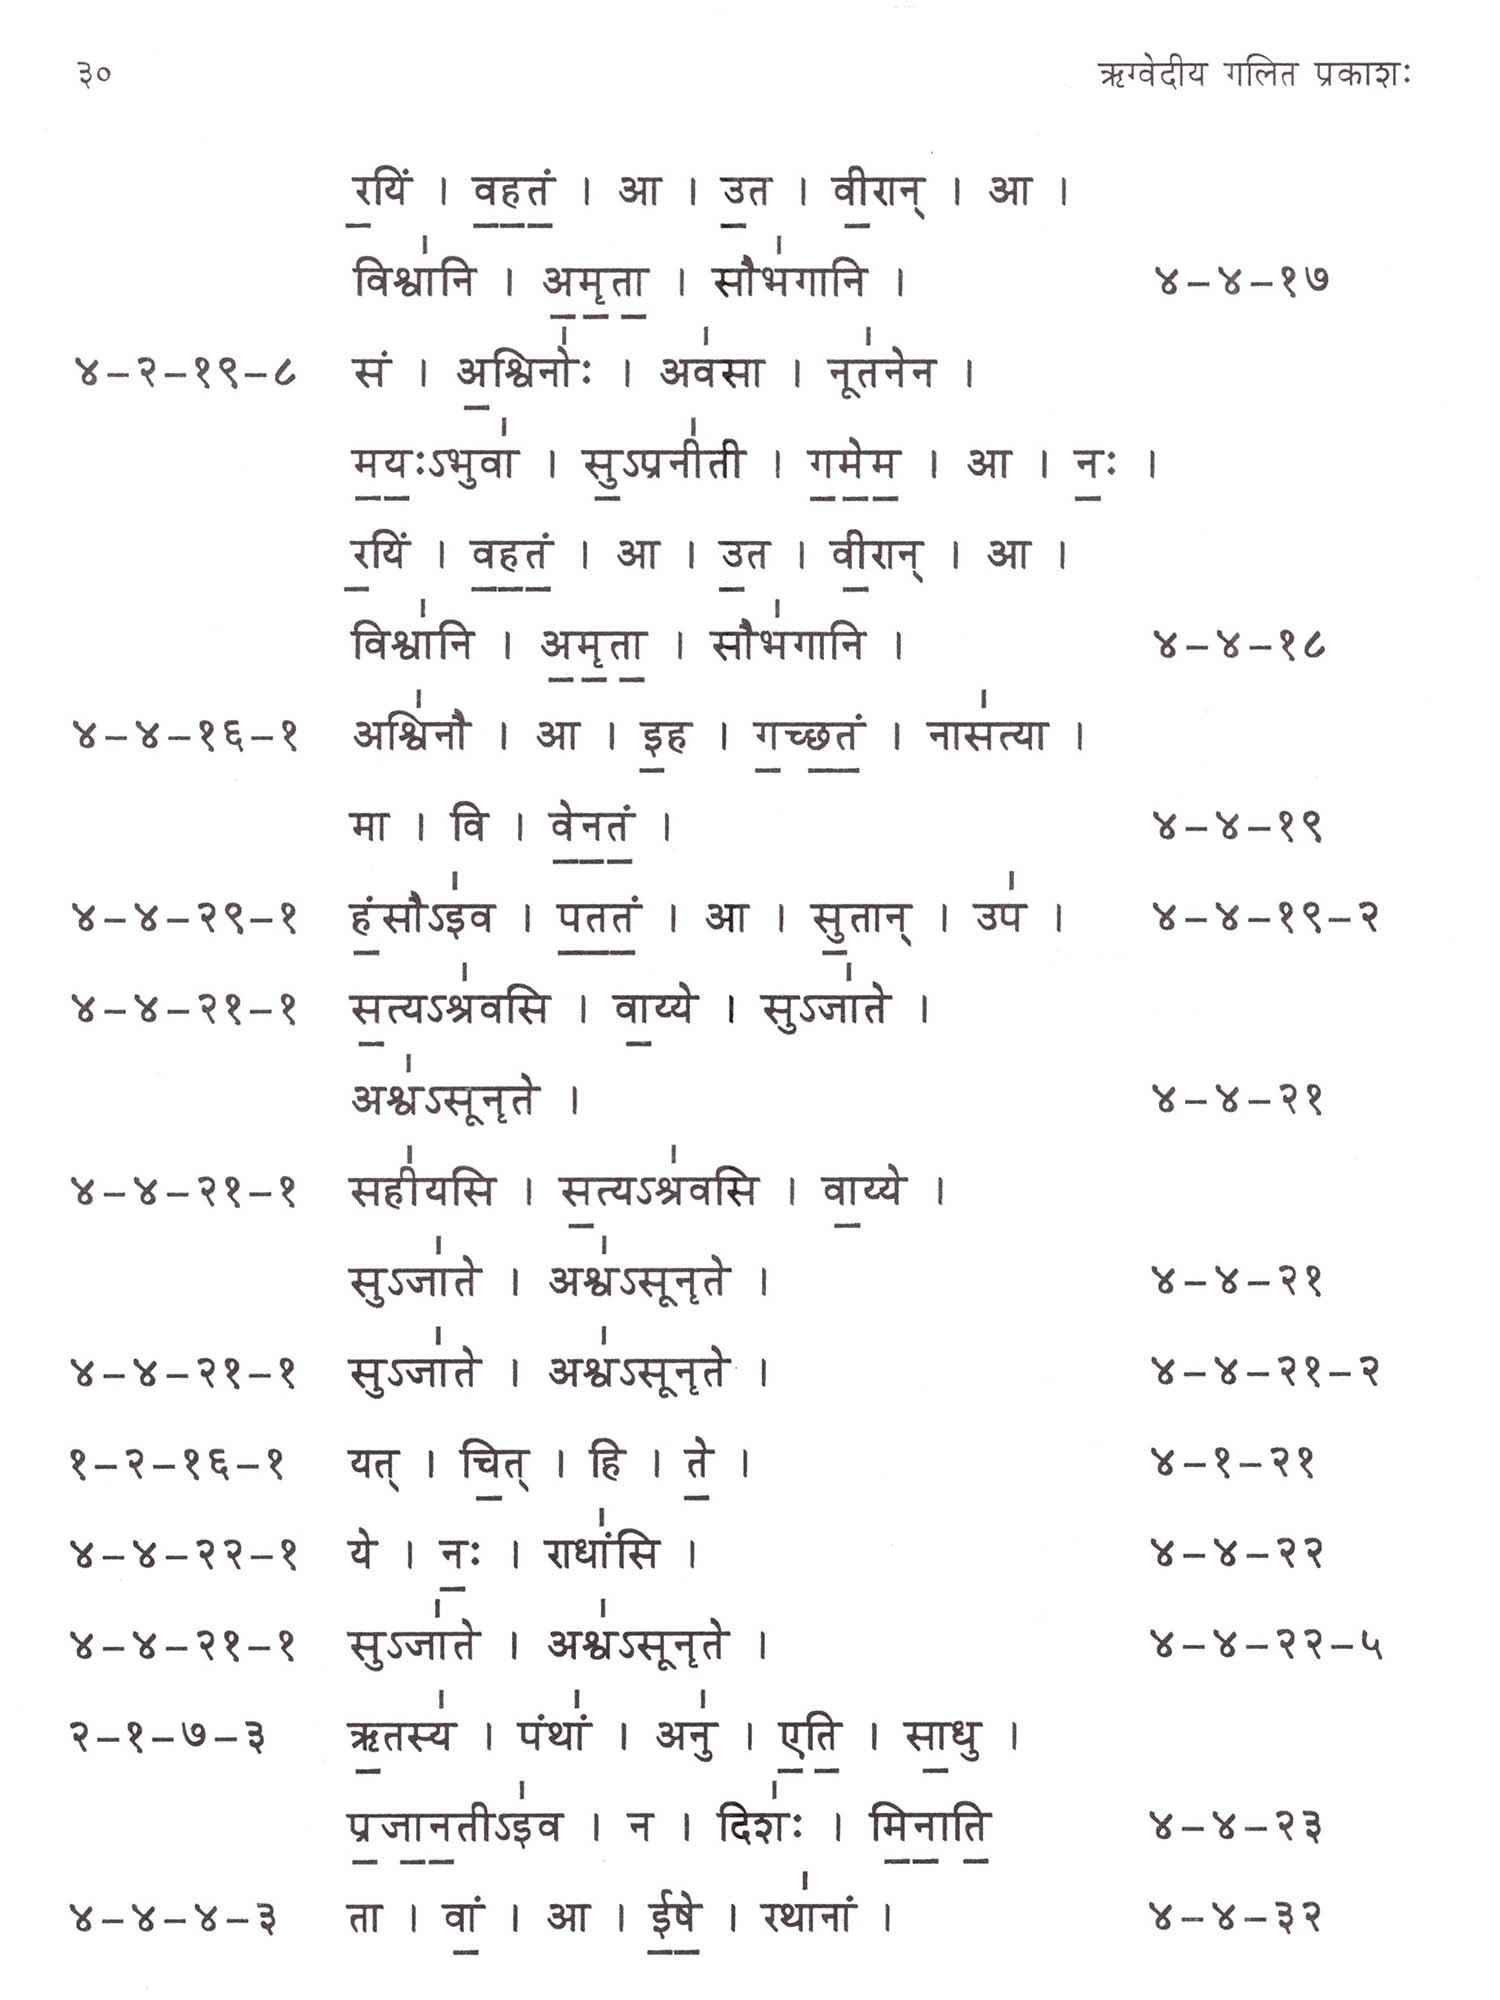 ३० ऋग्वेदीय गलित प्रकाशः
र॒यिं । व॒ह॒तं॒ । आ । उ॒त । वी॒रान् । आ ।
विश्वा॑नि । अ॒मृ॒ता॒ । सौभ॑गानि । ४–४–१७
४–२–१९–८ सं । अ॒श्विनोः॑ । अव॑सा । नूत॑नेन ।
म॒यः॒ऽभुवा॑ । सु॒ऽप्रनी॑ती । ग॒मे॒म॒ । आ । नः॒ ।
र॒यिं । व॒ह॒तं॒ । आ । उ॒त । वी॒रान् । आ ।
विश्वा॑नि । अ॒मृ॒ता॒ । सौभ॑गानि । ४–४–१८
४–४–१६–१ अश्वि॑नौ । आ । इ॒ह । ग॒च्छ॒तं॒ । नास॑त्या ।
मा । वि । वे॒न॒तं॒ । ४–४–१९
४–४–२९–१ हं॒सौऽइ॑व । प॒त॒तं॒ । आ । सु॒तान् । उप॑ । ४–४–१९–२
४–४–२१–१ स॒त्यऽश्र॑वसि । वा॒य्ये । सुऽजा॑ते ।
अश्व॑ऽसूनृते । ४–४–२१
४–४–२१–१ सही॑यसि । स॒त्यऽश्र॑वसि । वा॒य्ये ।
सुऽजा॑ते । अश्व॑ऽसूनृते । ४–४–२१
४–४–२१–१ सुऽजा॑ते । अश्व॑ऽसूनृते । ४–४–२१–२
१–२–१६–१ यत् । चि॒त् । हि । ते॒ । ४–१–२१
४–४–२२–१ ये । नः॒ । राधां॑सि । ४–४–२२
४–४–२१–१ सुऽजा॑ते । अश्व॑ऽसूनृते । ४–४–२२–५
२–१–७–३ ऋ॒तस्य॑ । पंथां॑ । अनु॑ । ए॒ति॒ । सा॒धु ।
प्र॒जा॒न॒तीऽइ॑व । न । दिशः॑ । मि॒ना॒ति॒ ४–४–२३
४–४–४–३ ता । वां॒ । आ । ई॒षे॒ । रथा॑नां । ४–४–३२